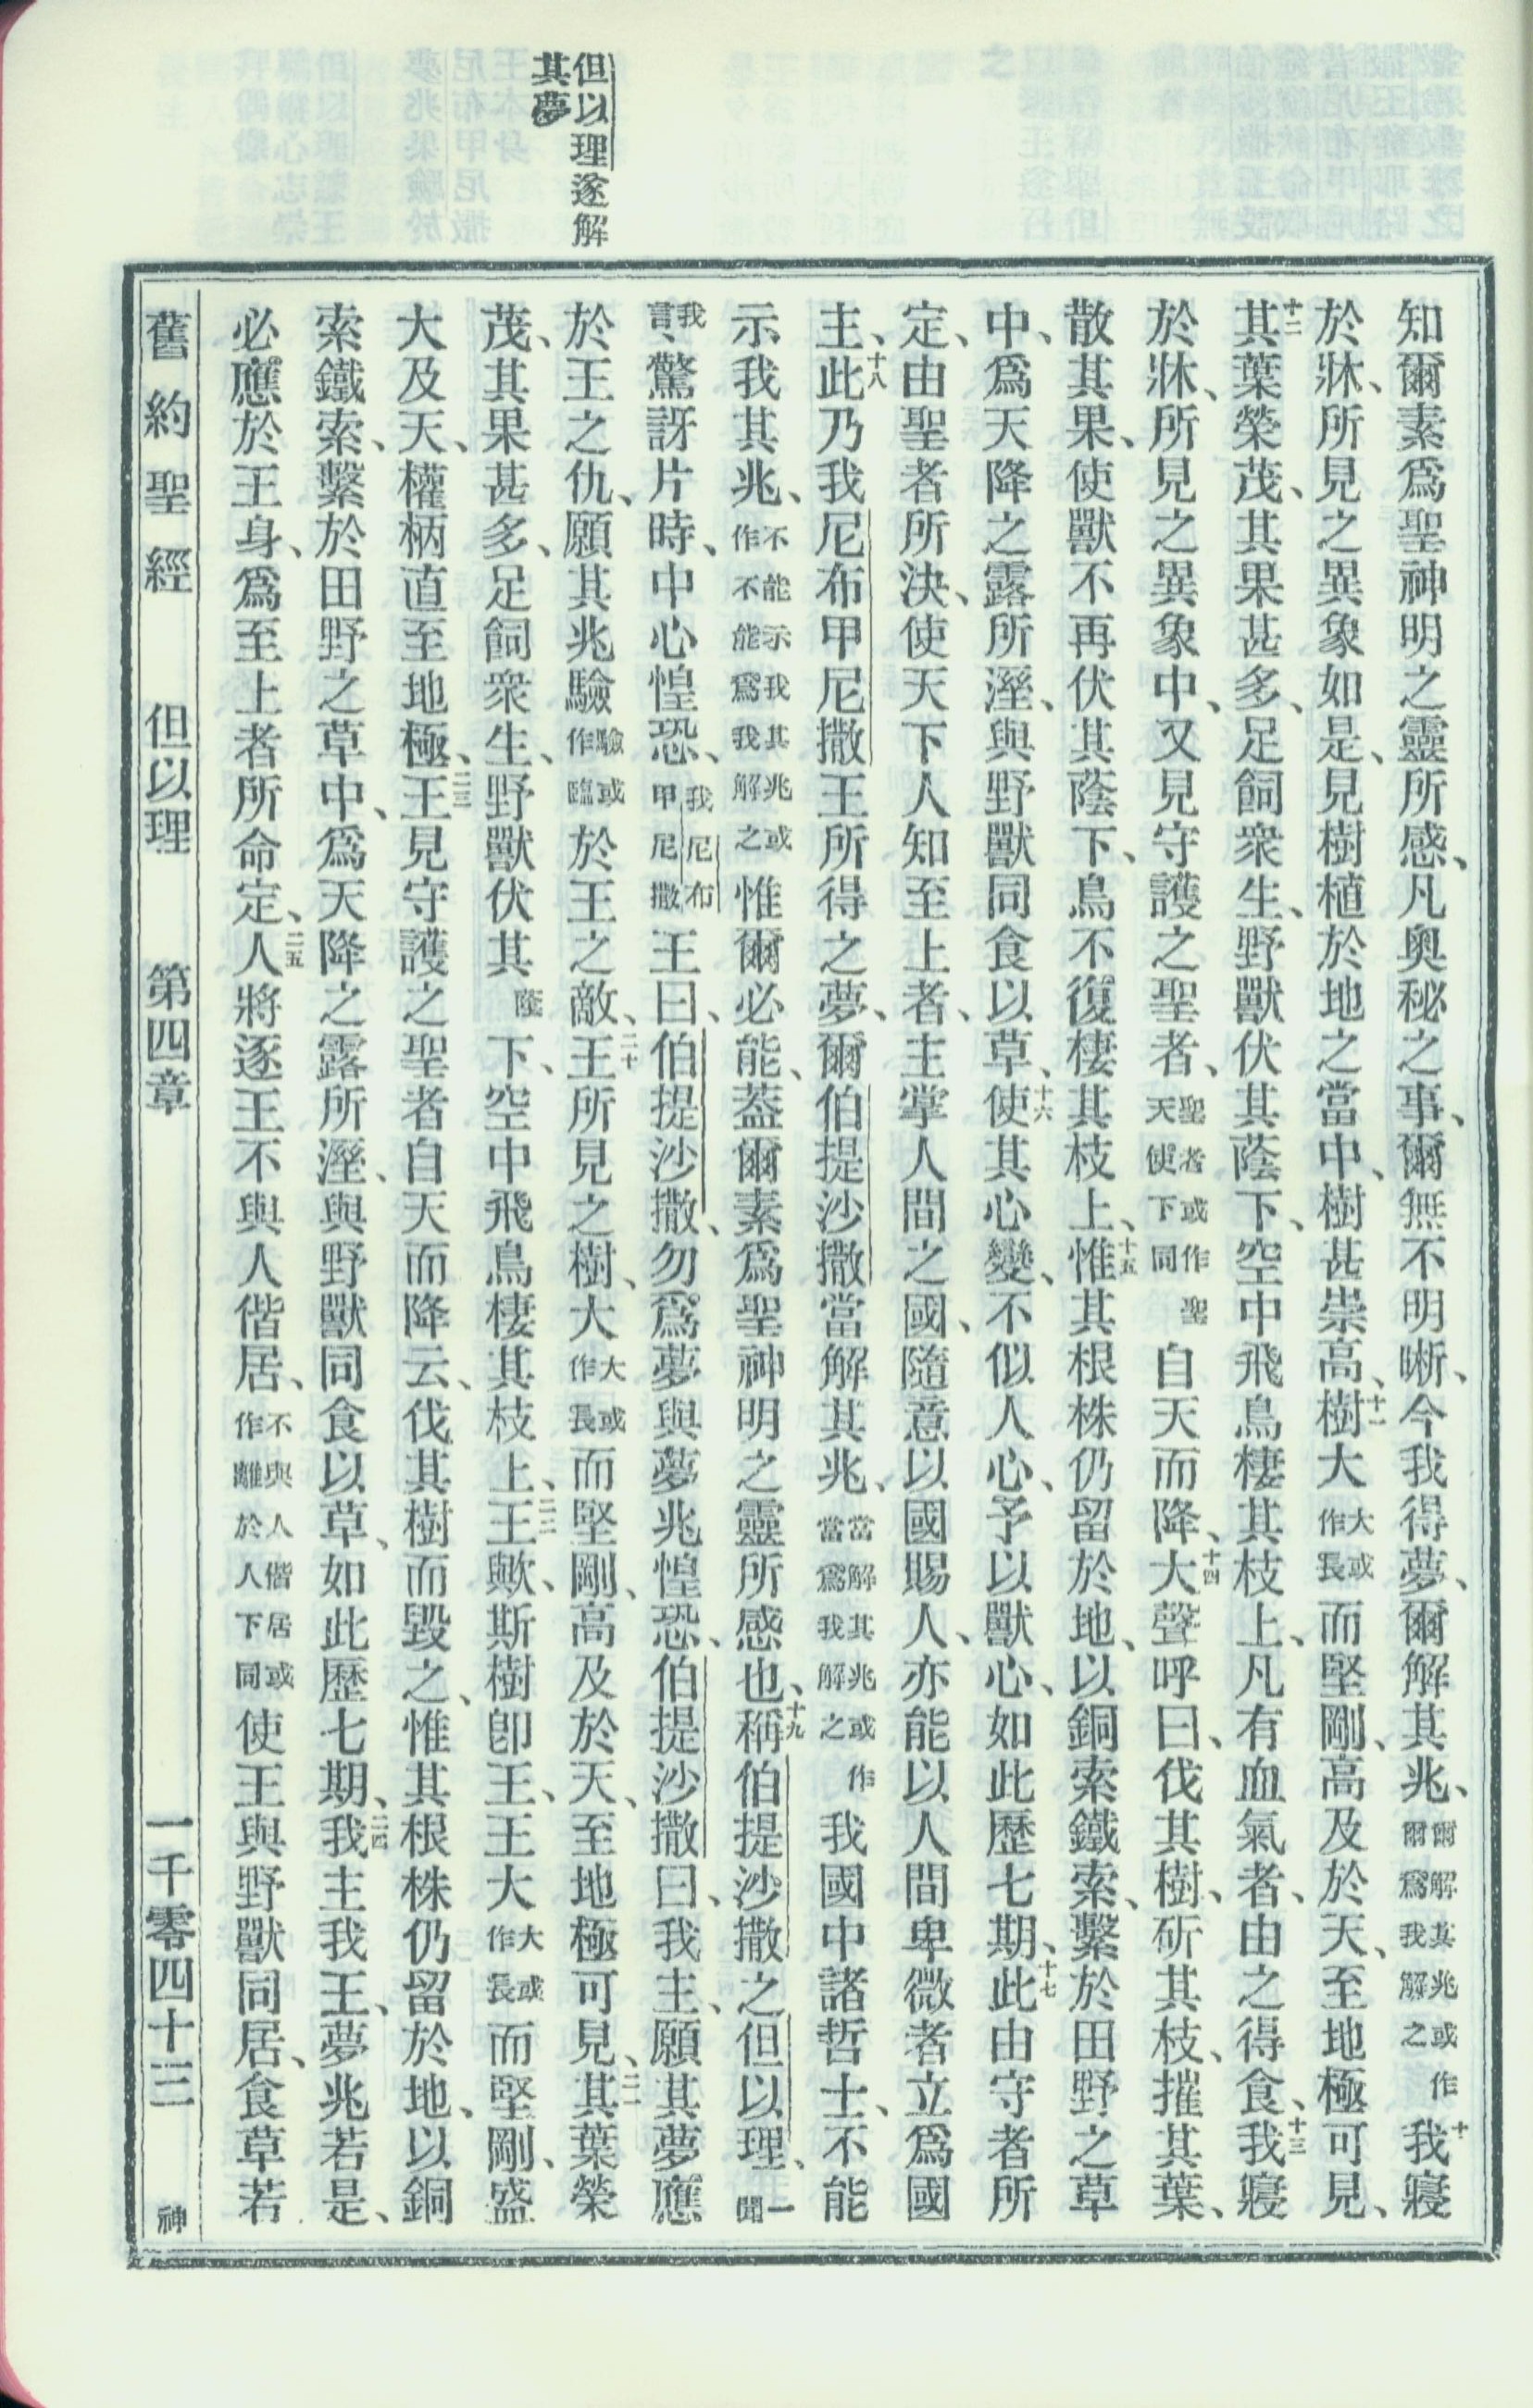 但以理遂解
其夢
知爾素爲聖神明之靈所感、凡奧秘之事、爾無不明晰、今我得夢、爾解其兆、爾解其兆或作爾爲我解之十我寢
於牀、所見之異象如是、見樹植於地之當中、樹甚崇高、十一樹大大或作長而堅剛、高及於天、至地極可見、
十二其葉榮茂、其果甚多、足飼衆生、野獸伏其蔭下、空中飛鳥棲其枝上、凡有血氣者、由之得食、十三我寢
於牀、所見之異象中、又見守護之聖者、聖者或作聖天使下同自天而降、十四大聲呼曰、伐其樹、斫其枝、摧其葉、
散其果、使獸不再伏其蔭下、鳥不復棲其枝上、十五惟其根株仍留於地、以銅索鐵索、繫於田野之草
中、爲天降之露所溼、與野獸同食以草、十六使其心變、不似人心、予以獸心、如此歷七期、十七此由守者所
定、由聖者所決、使天下人知至上者、主掌人間之國、隨意以國賜人、亦能以人間卑微者立爲國
主、十八此乃我尼布甲尼撒王所得之夢、爾伯提沙撒當解其兆、當解其兆或作當爲我解之我國中諸哲士、不能
示我其兆、不能示我其兆或作不能爲我解之惟爾必能、蓋爾素爲聖神明之靈所感也、十九稱伯提沙撒之但以理、一聞
我言、驚訝片時、中心惶恐、我尼布甲尼撒王曰、伯提沙撒、勿爲夢與夢兆惶恐、伯提沙撒曰、我主、願其夢應
於王之仇、願其兆驗驗或作臨於王之敵、二十王所見之樹、大大或作長而堅剛、高及於天、至地極可見、二一其葉榮
茂、其果甚多、足飼衆生、野獸伏其蔭下、空中飛鳥棲其枝上、二二王歟、斯樹卽王、王大大或作長而堅剛、盛
大及天、權柄直至地極、二三王見守護之聖者自天而降云、伐其樹而毀之、惟其根株仍留於地、以銅
索鐵索、繫於田野之草中、爲天降之露所溼、與野獸同食以草、如此歷七期、二四我主我王、夢兆若是、
必應於王身、爲至上者所命定、二五人將逐王不與人偕居、不與人偕居或作離於人下同使王與野獸同居、食草若
舊約聖經　但以理　第四章　一千零四十三　神